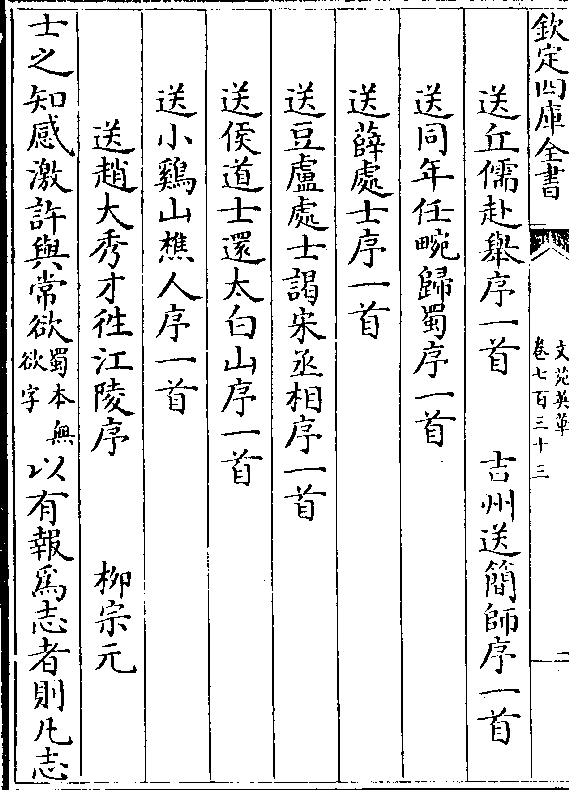 欽定四庫全書
文苑英華
卷七百三十三
二
送丘儒赴舉序一首　吉州送簡師序一首
送同年任畹歸蜀序一首
送薛處士序一首
送豆盧處士謁宋丞相序一首
送侯道士還太白山序一首
送小鷄山樵人序一首
送趙大秀才徃江陵序　柳宗元
士之知感激許與常欲蜀本無欲字以有報爲志者則凡志